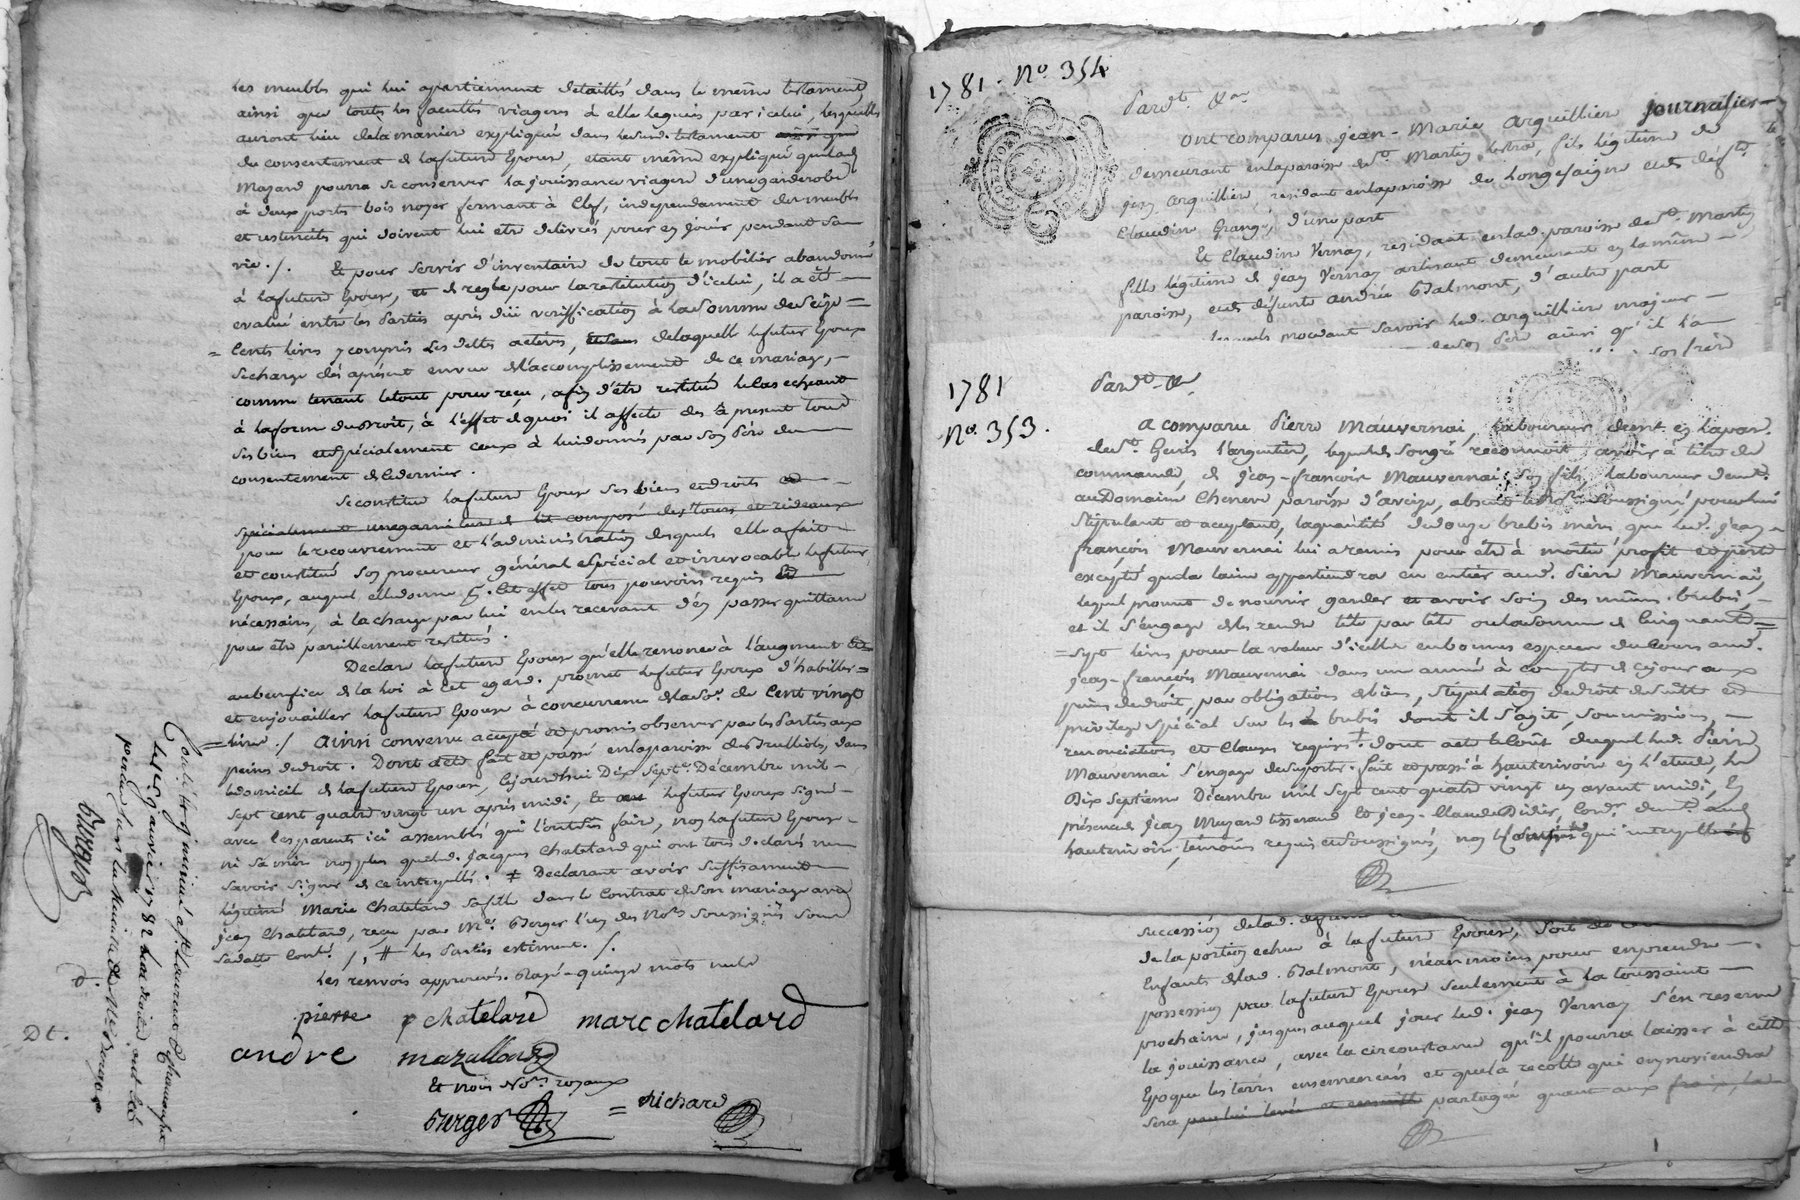 les meubles qui lui apartiennent detaillés dans le même testament
ainsi que toutes les facultés viageres à elle leguées par icelui, lesquelles
auront lieu de la maniere expliquée dans le susd. testament
du consentement de la future Epouse, etant même expliqué que lad.
Mazard pourra se conserver la jouissance viagere d'une garderobe
à deux portes bois noyer fermant à Clef, independament des meubles
et ustencils qui doivent lui etre delivrés pour en jouir pendant sa
vie ./. Et pour servir d'inventaire de tout le mobilier abandonné
à la future Epouse, et de regle pour la restitution d'icelui, il a été
evalué entre les Parties après düe verification à la somme de seize
Cents livres y compris les dettes actives, de laquelle le futur Epoux
se charge dès apresent en vue de l'accomplissement de ce mariage,
comme tenant le tout pour reçu, afin d'etre restitué le cas echeant
à la forme du Droit, à l'effet de quoi il affecte dès à present tous
ses biens et spécialement ceux à lui donnés par son Père du
consentement de ce dernier.
Se constitue la future Epouse ses biens et droits
specialement une garniture de lit composé des tours et rideaux
pour le recouvrement et l'administration desquels elle a fait
et constitué son procureur général et spécial et irrevocable le futur
Epoux, auquel elle donne à cet effet tous pouvoirs requis et
nécessaires, à la charge par lui en les recevant d'en passer quittance
pour être pareillement restitués.
Declare la future Epouse qu'elle renonce à l'augment
au benefice de la loi à cet egard. promet le futur Epoux d'habiller
et enjouailler la future Epouse à concurrence de la Soe. de Cent vingt
livres ./. Ainsi convenu accepté et promis observer par les Parties aux
peines de droit. Dont acte fait et passé en la paroisse des Brullioles, dans
le domicile de la future Epouse, cejourd'hui Dix Sept Décembre mil
sept cent quatre vingt un après midi, Et le futur Epoux signé
avec les parents ici assemblés qui l'ont sçu faire, non la future Epouse
ni sa mère non plus que led. Jacques Chatelard qui ont tous declarés ne
savoir signer de ce interpellés. Declarant avoir suffisament
légitimé Marie Chatelard sa fille dans le Contrat de son mariage avec
jean Chatelard, reçu par Me. Berger l'un des Nores. soussignés sous
sa datte Cont. ./. # les Parties estiment. ./.
les renvois approuvés. Rayé quinze mots nuls
pierre p chatelard marc chatelard
andré mazallon
Et nous Nores. royaux
Berger = Richard
Dt.
1781. No. 354
Pard.t &a.
Ont comparus jean-Marie Arquillier journalier
demeurant en la paroisse de St. Martin Lestra, fils légitime de
jean Arquillier, residant en la paroisse de Longesaigne et de défte.
Claudine Grange, d'une part
Et Claudine Vernay, residant en lad. paroisse de St. Martin
fille légitime de jean Vernay artisant demeurant en la même
paroisse, et de défunte andrée Balmont, d'autre part
Lesquels procedant savoir led. Arquillier majeur
de son Père ainsi qu'il l'a
son frère
1781
No. 353.
Pard.t &a
A comparu Pierre Mauvernai, laboureur demt. en la par.
de St. Genis l'argentière, lequel de son gré reconnoit avoir à titre de
commande, de jean-françois Mauvernai son fils laboureur demt.
au Domaine Chenevé paroisse d'aveize, absent le Nore. soussigné, pour lui
stipulant et acceptant, la quantité de douze brebis mères que led. jean
françois Mauvernai lui a remis pour être à moitié profit et perte
excepté que la laine appartiendra en entier aud. Pierre Mauvernai,
lequel promet de nourrir garder et avoir soin des mêmes brebis,
et il s'engage de les rendre tête par tête ou la somme de Cinquante
sept livres pour la valeur d'icelles en bonnes especes du Cours aud.
jean-françois Mauvernai dans une année à compter de cejour aux
peines de droit, par obligation de biens, stipulation de droit de suitte et
privilege spécial sur les brebis dont il s'agit, soumissions,
renonciations et Clauses requises. dont acte le Coût duquel led. Pierre
Mauvernai s'engage de suporter. fait et passé à hauterivoire en l'etude, le
Dix septieme Décembre mil sept cent quatre vingt un avant midi, En
présence de jean Muzard tisserand Et jean-Claude Didier, Cordr. demt. aud.
hauterivoire, temoins requis et soussignés, non qui interpellé
succession de lad. defunte
de la portion echue à la future Epouse, soit de
Enfants de lad. Balmont, néanmoins pour en prendre
possession par la future Epouse seulement à la toussaint
prochaine, jusques auquel jour led. jean Vernay s'en reserve
la jouissance, avec la circonstance qu'il pourra laisser à cette
Epoque les terres ensemencées et que la recolte qui en proviendra
sera partagée quant aux